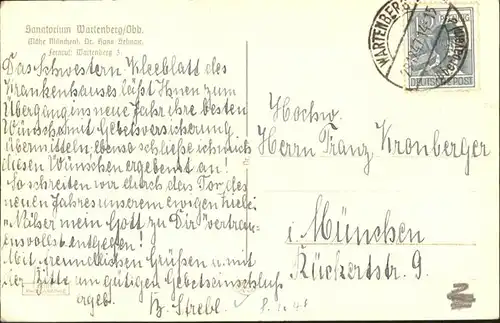 Sanatorium Wartenberg/Obb.
(Nähe München). Dr. Hans Selmair.
Fernruf: Wartenberg 3.
Das Schwestern-Kleeblatt des
Krankenhauses läßt Ihnen zum
Übergang ins neue Jahr ihre besten
Wünsche mit Gebetsversicherung
übermitteln, ebenso schließe ich mich
diesen Wünschen ergebenst an!
So schreiten wir durch das Tor des
neuen Jahres unserem ewigen Ziele:
"Näher mein Gott zu Dir" vertrau-
ensvollst entgegen!
Mit freundlichen Grüßen u. mit
der Bitte um gütigen Gebetseinschluß
ergeb.
B. Strebl.
WARTENBERG
DEUTSCHE POST
Hochw.
Herrn Franz Kronberger
i. München
Rückertstr. 9.